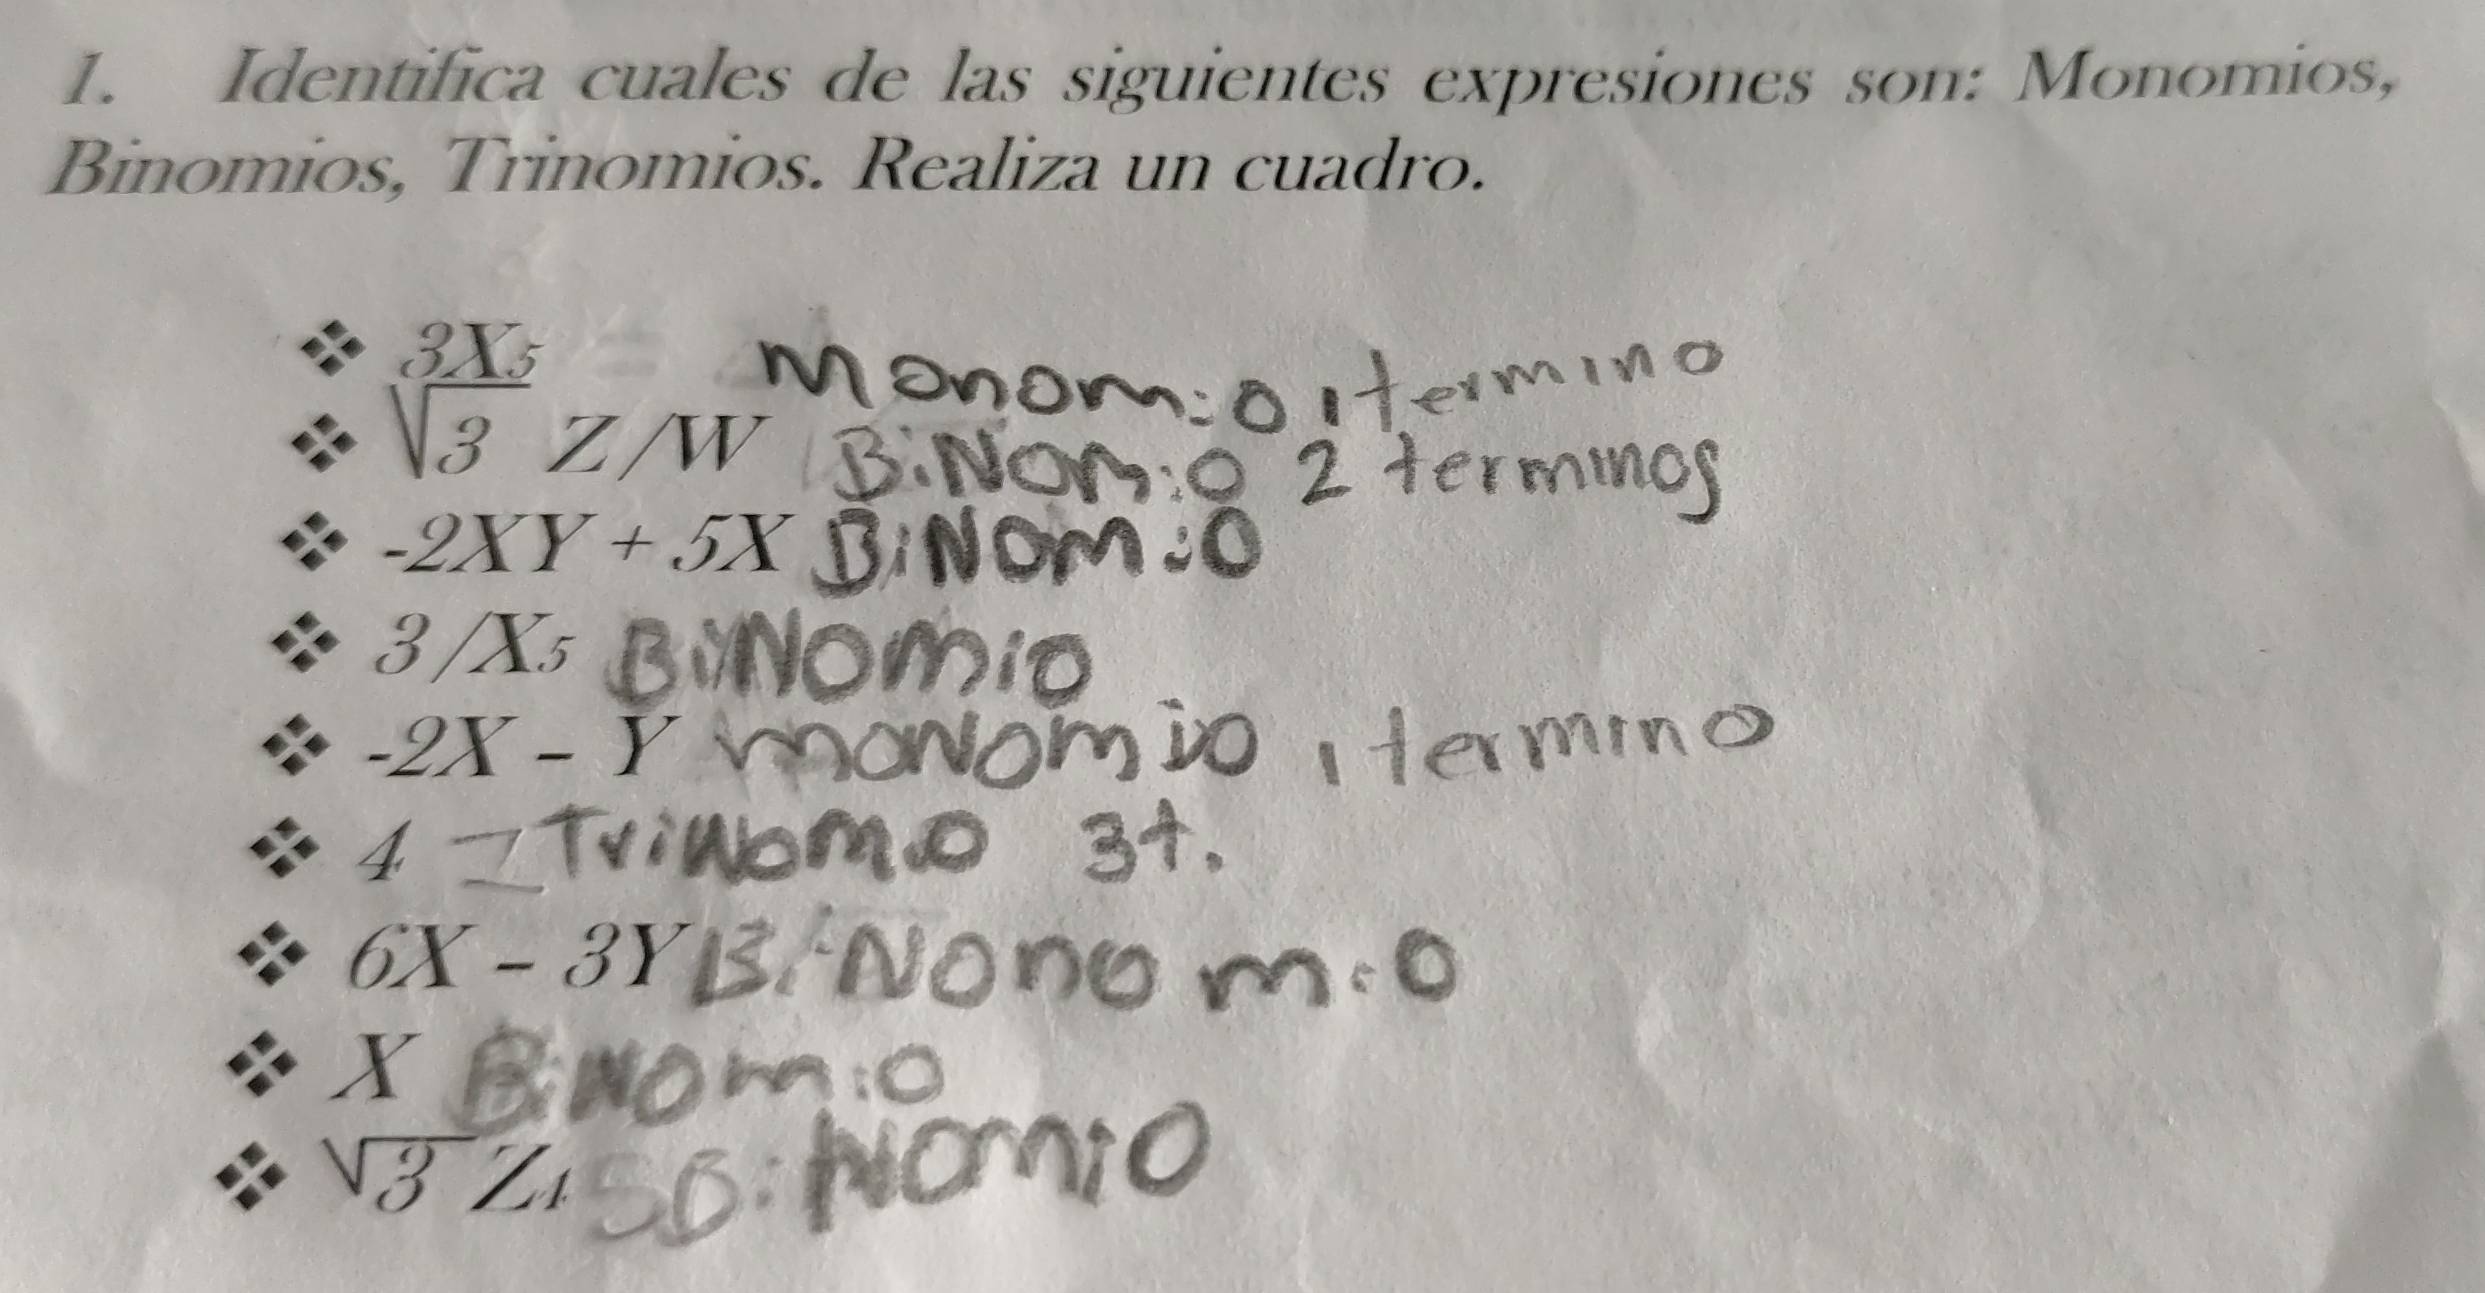 1. Identifica cuales de las siguientes expresiones son: Monomios,
Binomios, Trinomios. Realiza un cuadro.
❖ 3X5 Monomio 1 termino
❖ √3 Z/W BiNOMiO 2 terminos
❖ -2XY + 5X BiNOMiO
❖ 3/X5 BiNOMiO
❖ -2X - Y MONOMiO 1 termino
❖ 4 TriNoMiO 3t.
❖ 6X - 3Y BiNOnOmiO
❖ X BiNOmiO
❖ √3 Z4 BiNOmiO